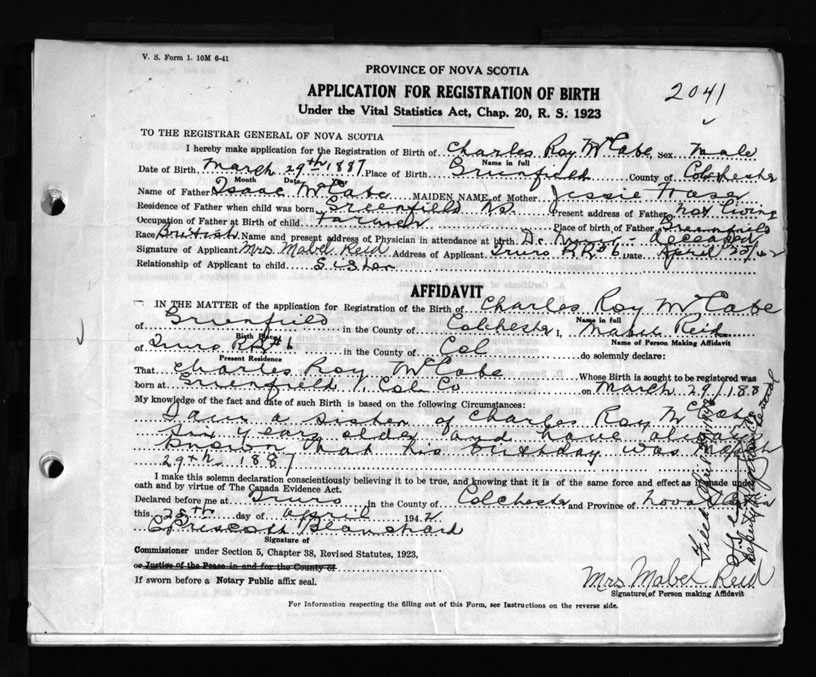 V. S. Form 1. 10M 6-41
PROVINCE OF NOVA SCOTIA
APPLICATION FOR REGISTRATION OF BIRTH
2041
Under the Vital Statistics Act, Chap. 20, R. S. 1923
TO THE REGISTRAR GENERAL OF NOVA SCOTIA
I hereby make application for the Registration of Birth of Charles Roy McCabe Sex Male
Name in full
Date of Birth March 29th 1887 Place of Birth Greenfield County of Colchester
Month Date
Name of Father Isaac McCabe MAIDEN NAME of Mother Jessie Fraser
Residence of Father when child was born Greenfield N.S. Present address of Father not living
Occupation of Father at Birth of child Farmer Place of birth of Father Greenfield
Race British Name and present address of Physician in attendance at birth Dr. deceased
Signature of Applicant Mrs Mabel Reid Address of Applicant Truro R.R. 6 Date April 28/42
Relationship of Applicant to child Sister
AFFIDAVIT
IN THE MATTER of the application for Registration of the Birth of Charles Roy McCabe
Name in full
of Greenfield in the County of Colchester I, Mabel Reid
Birth Place Name of Person Making Affidavit
of Truro R.R. # 6 in the County of Col do solemnly declare:
Present Residence
That Charles Roy McCabe Whose Birth is sought to be registered was
born at Greenfield Col. Co on March 29/1887
My knowledge of the fact and date of such Birth is based on the following Circumstances:
I am a sister of Charles Roy McCabe
years older and have always
known that his birthday was March
29th 1887
I make this solemn declaration conscientiously believing it to be true, and knowing that it is of the same force and effect as if made under
oath and by virtue of The Canada Evidence Act.
Declared before me at Truro in the County of Colchester and Province of Nova Scotia
this 28th day of April 1942
C. Prescott Blanchard
Signature of
Commissioner under Section 5, Chapter 38, Revised Statutes, 1923,
or Justice of the Peace in and for the County of
If sworn before a Notary Public affix seal.
Mrs Mabel Reid
Signature of Person making Affidavit
For Information respecting the filling out of this Form, see Instructions on the reverse side.